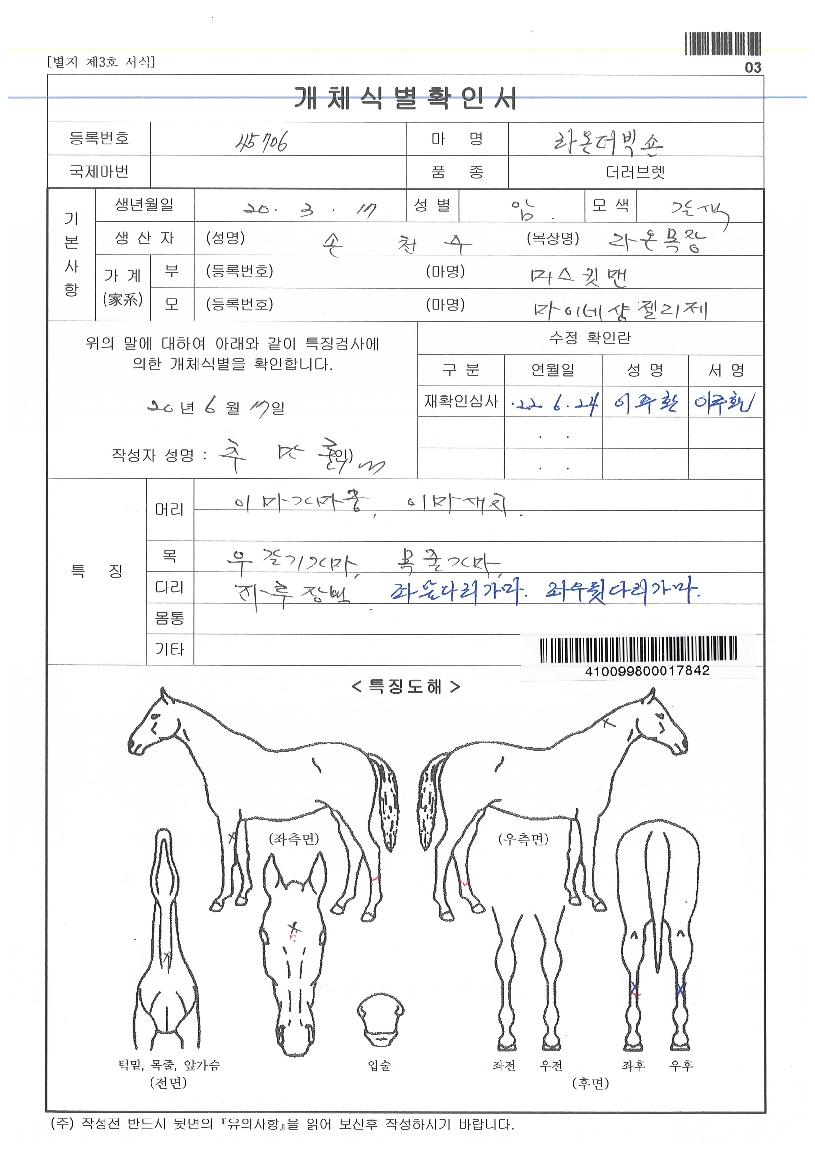 [별지 제3호 서식]
03
개체식별확인서
등록번호 45706 마 명 라온더빅손
국제마번 품 종 더러브렛
기본사항
생년월일 20. 3. 17 성별 암. 모색 갈색
생 산 자 (성명) 손 천 수 (목상명) 라온목장
가계 (家系) 부 (등록번호) (마명) 머스킷맨
모 (등록번호) (마명) 마이네샹젤리제
위의 말에 대하여 아래와 같이 특징검사에
의한 개체식별을 확인합니다.
20년 6월 17일
작성자 성명 : (인)
수정 확인란
구 분 연월일 성 명 서 명
재확인심사 '22. 6. 24 이주환 이주환
. .
. .
특 징
머리 이마가마중, 이마새치.
목 우 갈기가마, 목줄가마,
다리 좌앞다리가마. 좌우뒷다리가마.
몸통
기타
410099800017842
< 특징도해 >
(좌측면) (우측면)
턱밑, 목줄, 앞가슴
(전면)
입술
좌전 우전 좌후 우후
(후면)
(주) 작성전 반드시 뒷면의 『유의사항』을 읽어 보신후 작성하시기 바랍니다.